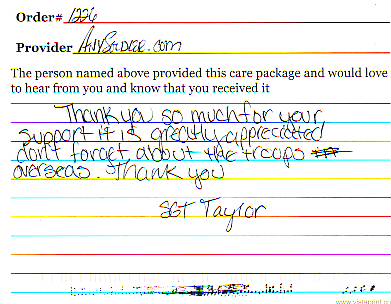 Order# 1226
Provider AnySoldier.com
The person named above provided this care package and would love
to hear from you and know that you received it
Thank you so much for your
support it is greatly appreciated
dont forget about the troops
overseas. Thank you
SGT Taylor